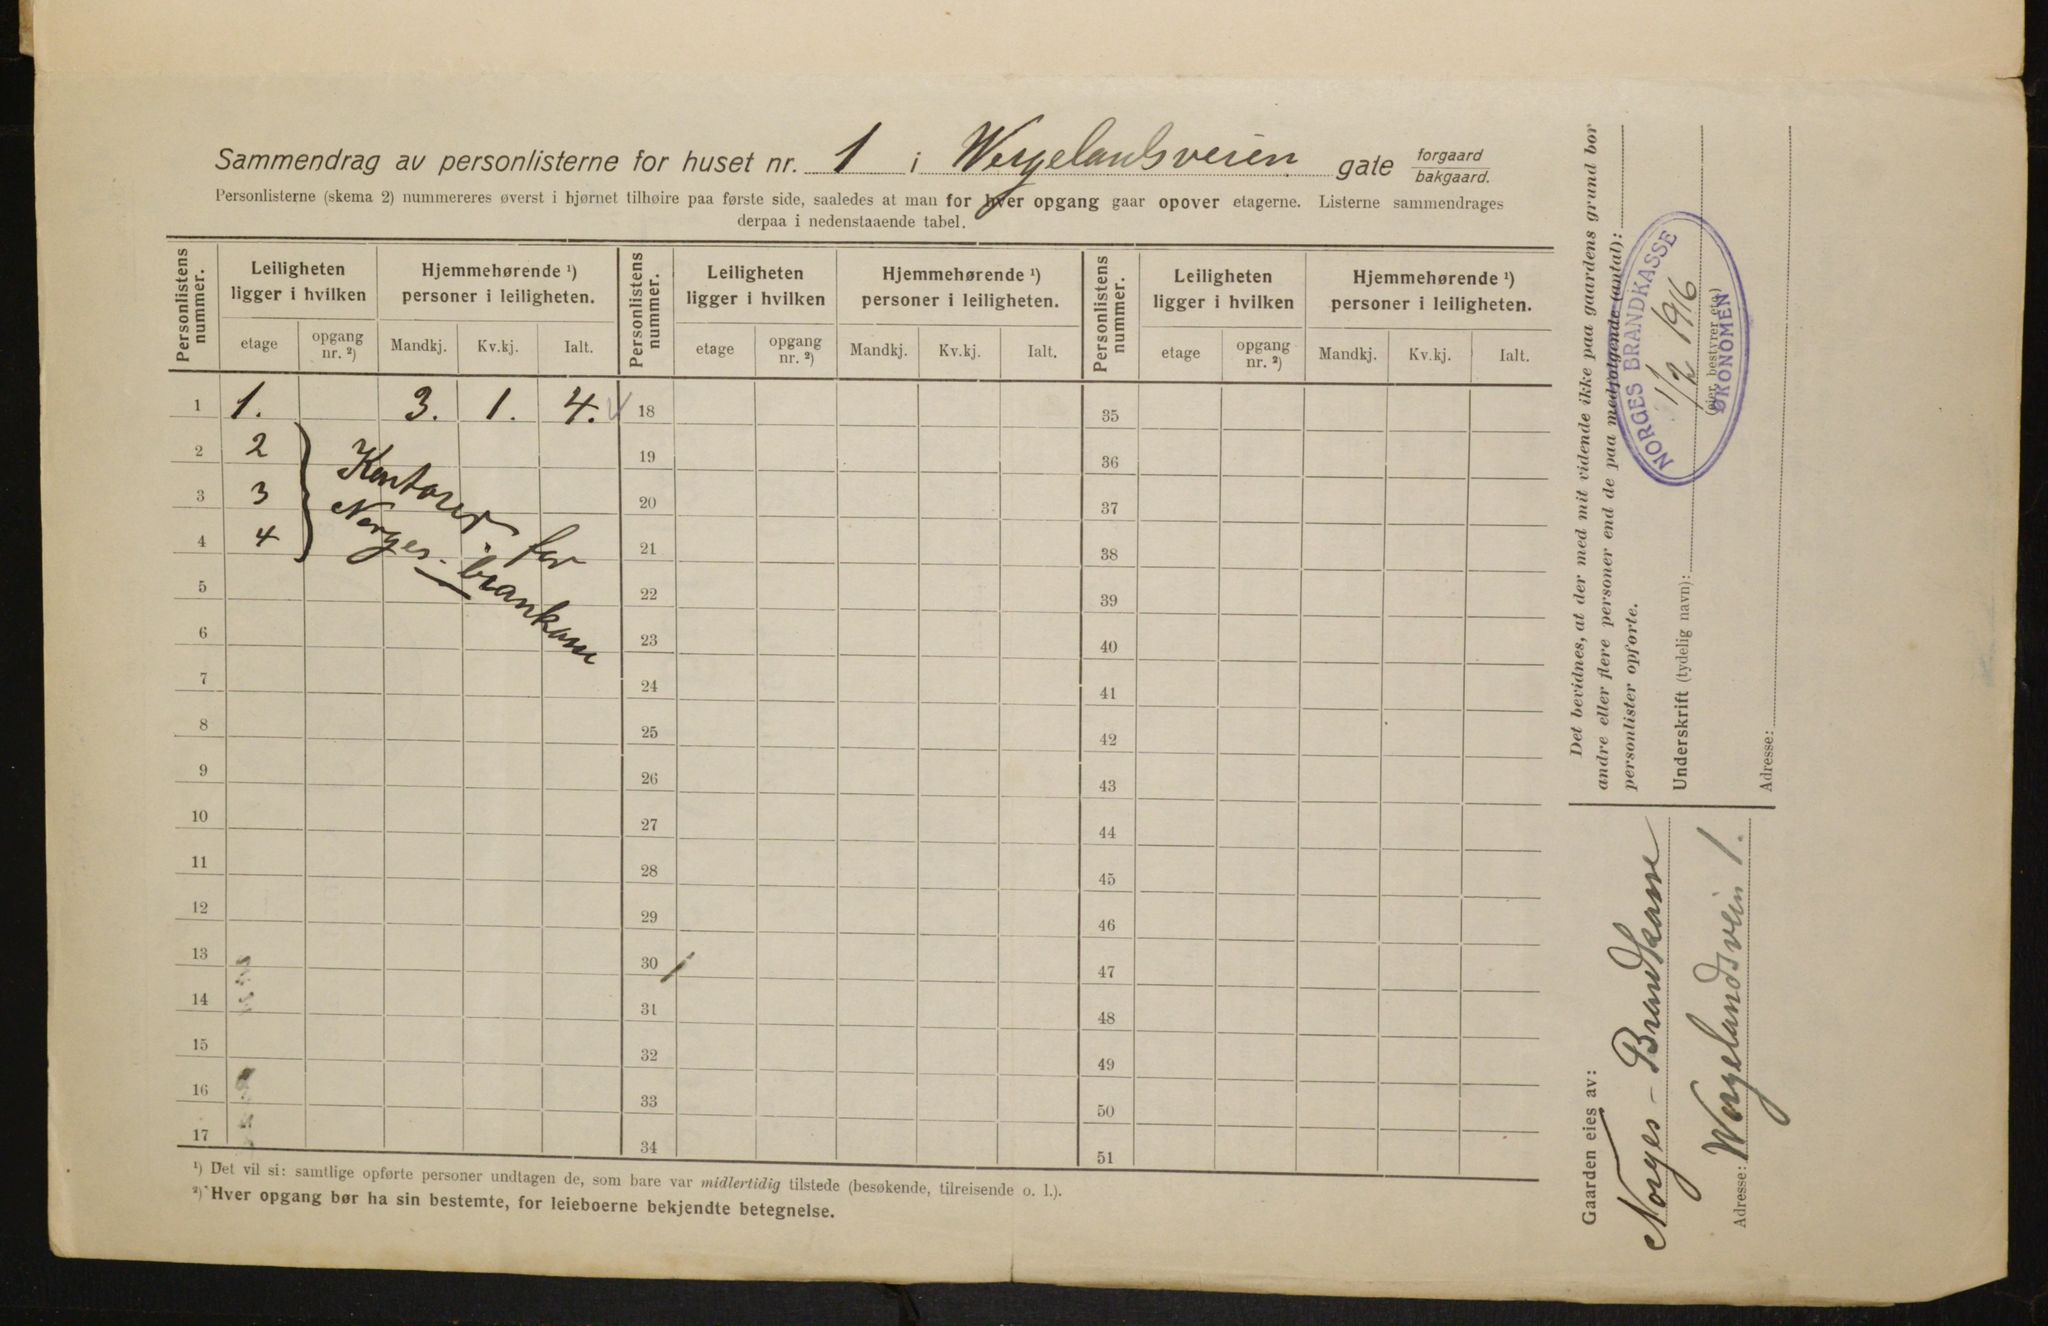 Sammendrag av personlisterne for huset nr. 1 i Wergelandsveien gate forgaard
bakgaard.
Personlisterne (skema 2) nummereres øverst i hjørnet tilhøire paa første side, saaledes at man for hver opgang gaar opover etagerne. Listerne sammendrages
derpaa i nedenstaaende tabel.
Personlistens nummer. Leiligheten ligger i hvilken Hjemmehørende ¹) personer i leiligheten. Personlistens nummer. Leiligheten ligger i hvilken Hjemmehørende ¹) personer i leiligheten. Personlistens nummer. Leiligheten ligger i hvilken Hjemmehørende ¹) personer i leiligheten.
etage opgang nr. ²) Mandkj. Kv.kj. Ialt. etage opgang nr. ²) Mandkj. Kv.kj. Ialt. etage opgang nr. ²) Mandkj. Kv.kj. Ialt.
1 1. 3. 1. 4. 18 35
2 2 19 36
3 3 20 37
4 4 21 38
Kontorer for
Norges brankasse
5 22 39
6 23 40
7 24 41
8 25 42
9 26 43
10 27 44
11 28 45
12 29 46
13 30 47
14 31 48
15 32 49
16 33 50
17 34 51
¹) Det vil si: samtlige opførte personer undtagen de, som bare var midlertidig tilstede (besøkende, tilreisende o. l.).
²) Hver opgang bør ha sin bestemte, for leieboerne bekjendte betegnelse.
Det bevidnes, at der med mit vidende ikke paa gaardens grund bor
andre eller flere personer end de paa medfølgende (antal):
personlister opførte.
Underskrift (tydelig navn):
(eier, bestyrer etc.)
Adresse:
NORGES BRANDKASSE
1/2 1916
ØKONOMEN
Gaarden eies av:
Norges - Brandkasse
Adresse: Wergelandsveien 1.